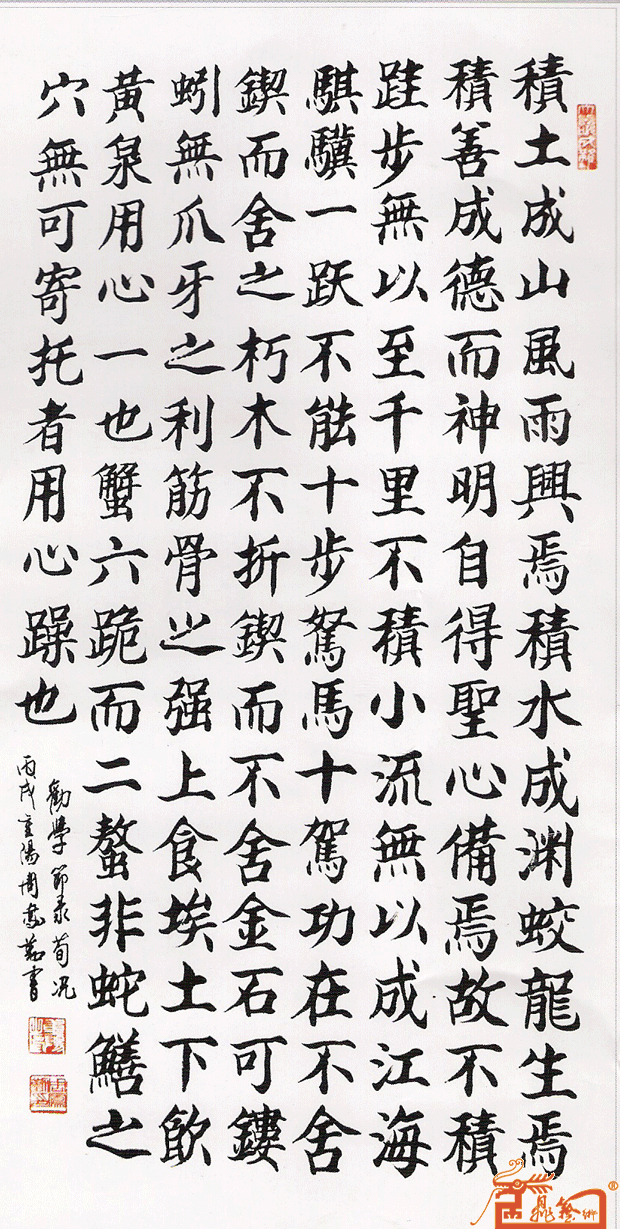 積土成山風雨興焉積水成渊蛟龍生焉
積善成德而神明自得聖心備焉故不積
跬步無以至千里不積小流無以成江海
騏驥一跃不能十步駑馬十駕功在不舍
鍥而舍之朽木不折鍥而不舍金石可鏤
蚓無爪牙之利筋骨之强上食埃土下飲
黄泉用心一也蟹六跪而二螯非蛇鱔之
穴無可寄托者用心躁也
勸學節录荀况
丙戌重陽周
書